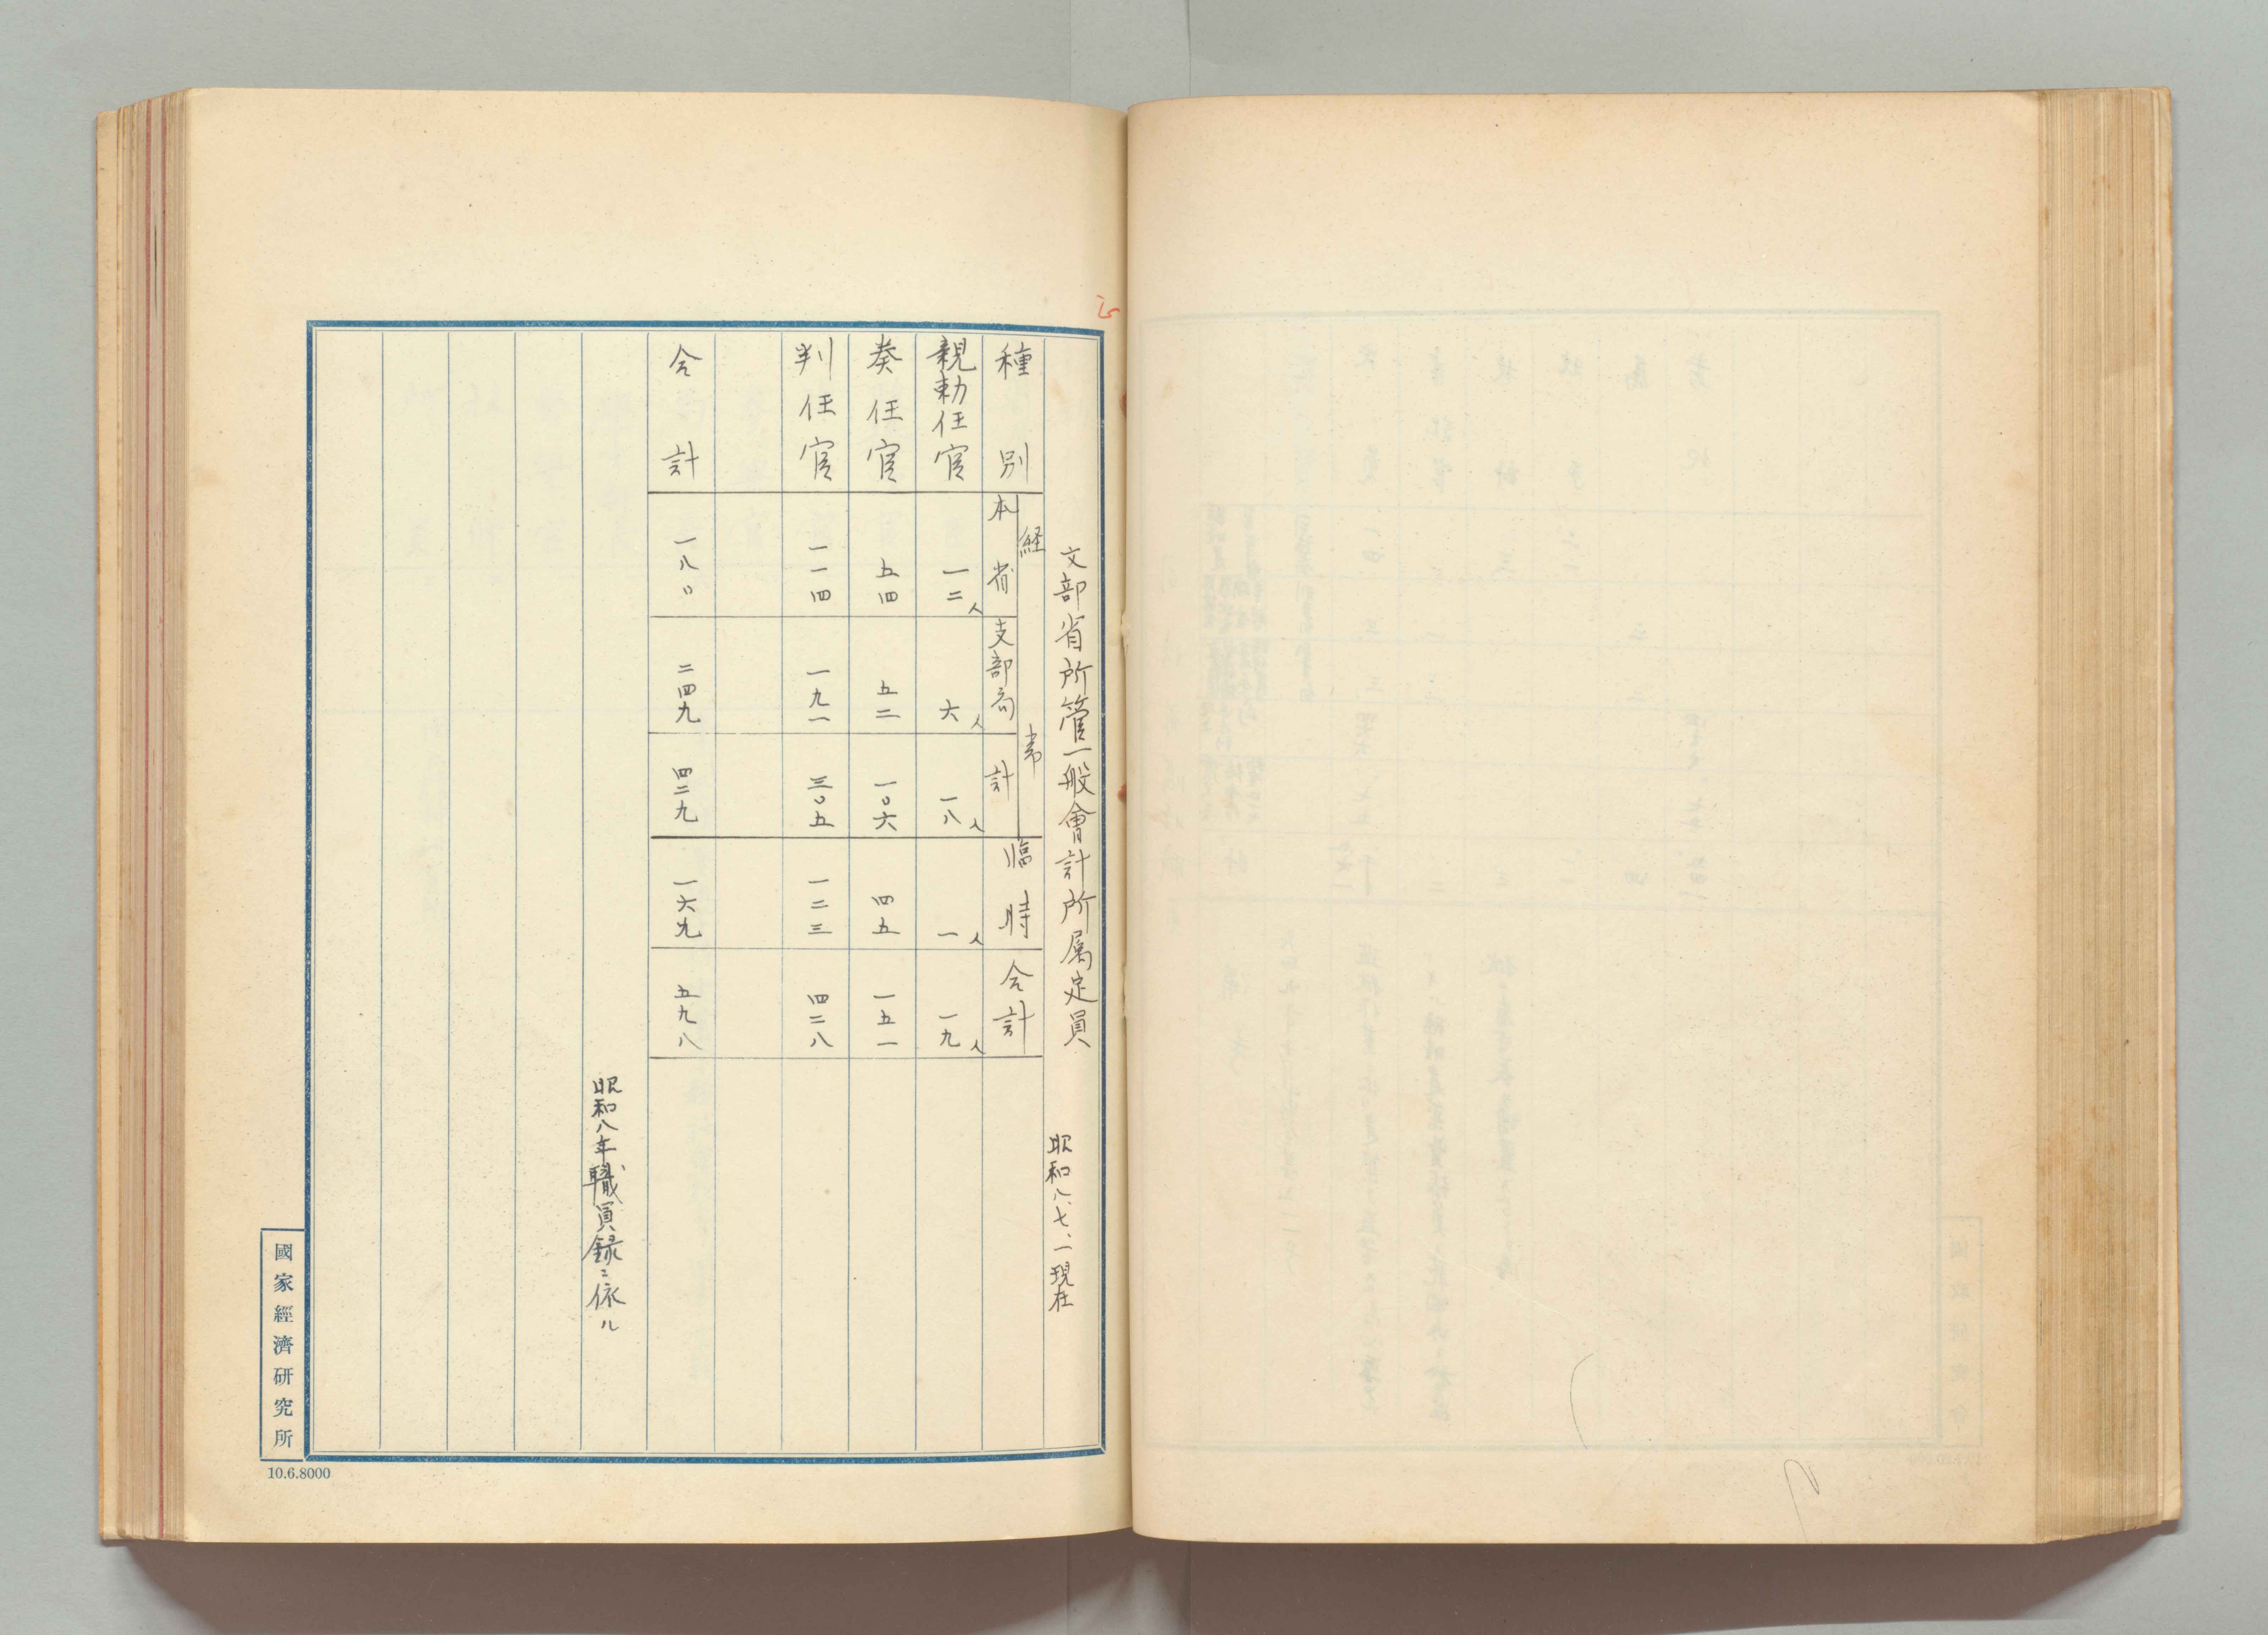 文部省所管一般會計所属定員
昭和八、七、一現在
種別
経常
本省
支部局
計
臨時
合計
親勅任官 一二人 六人 一八人 一人 一九人
奏任官 五四 五二 一〇六 四五 一五一
判任官 一一四 一九一 三〇五 一二三 四二八
合計 一八〇 二四九 四二九 一六九 五九八
昭和八年職員録ニ依ル
國家經濟研究所
10.6.8000